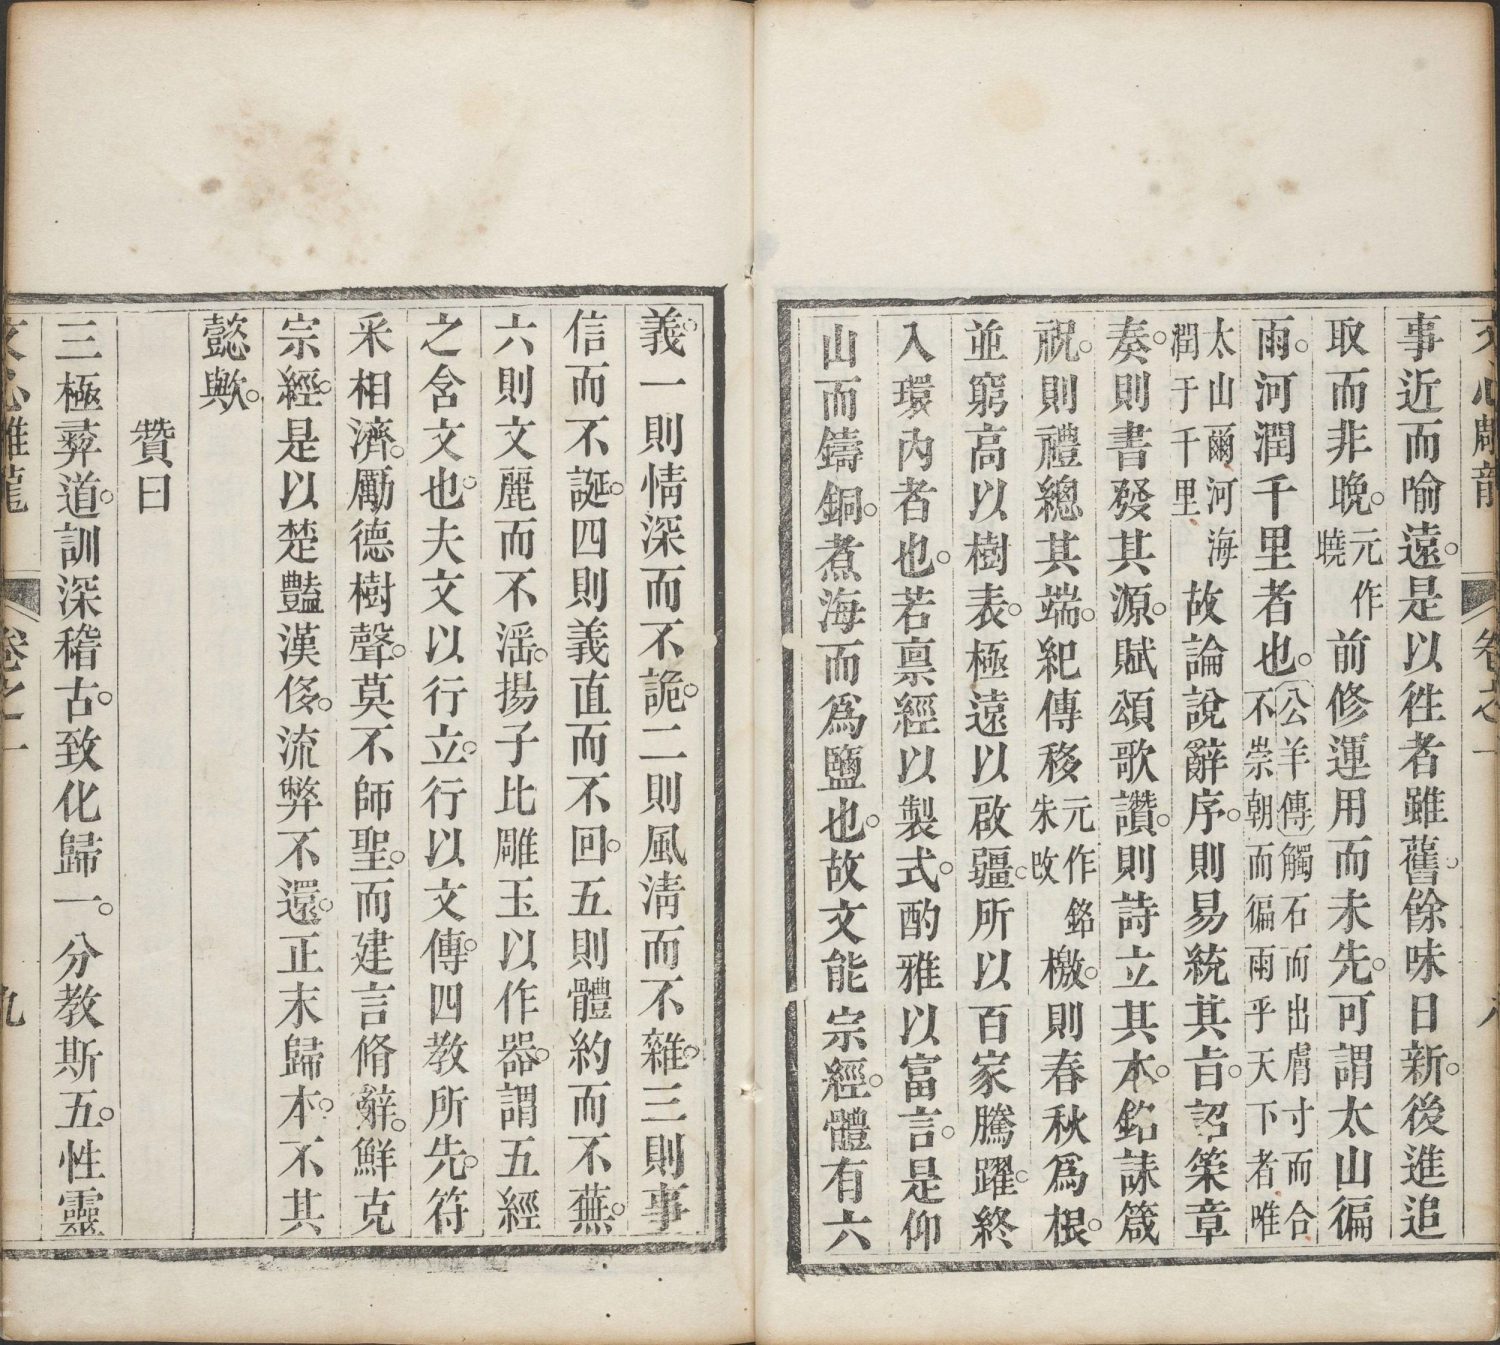 文心雕龍 卷之一 八
事近而喻遠。是以徃者雖舊。餘味日新。後進追
取而非晚。元作曉前修運用而未先。可謂太山徧
雨。河潤千里者也。公羊傳觸石而出膚寸而合不崇朝而徧雨乎天下者唯
太山爾河海潤于千里故論說辭序。則易統其㫖。詔策章
奏。則書發其源。賦頌歌讚。則詩立其本。銘誄箴
祝。則禮總其端。紀傳移元作銘朱改檄。則春秋爲根。
並窮高以樹表。極遠以啟疆。所以百家騰躍。終
入環內者也。若禀經以製式。酌雅以富言。是仰
山而鑄銅。煮海而爲鹽也。故文能宗經。體有六
義。一則情深而不詭。二則風淸而不雜。三則事
信而不誕。四則義直而不回。五則體約而不蕪。
六則文麗而不滛。揚子比雕玉以作器。謂五經
之含文也。夫文以行立。行以文傳。四教所先。符
采相濟。勵德樹聲。莫不師聖。而建言脩辭。鮮克
宗經。是以楚豔漢侈。流弊不還。正末歸本。不其
懿歟。
贊曰
三極彛道。訓深稽古。致化歸一。分教斯五。性靈
文心雕龍 卷之一 九